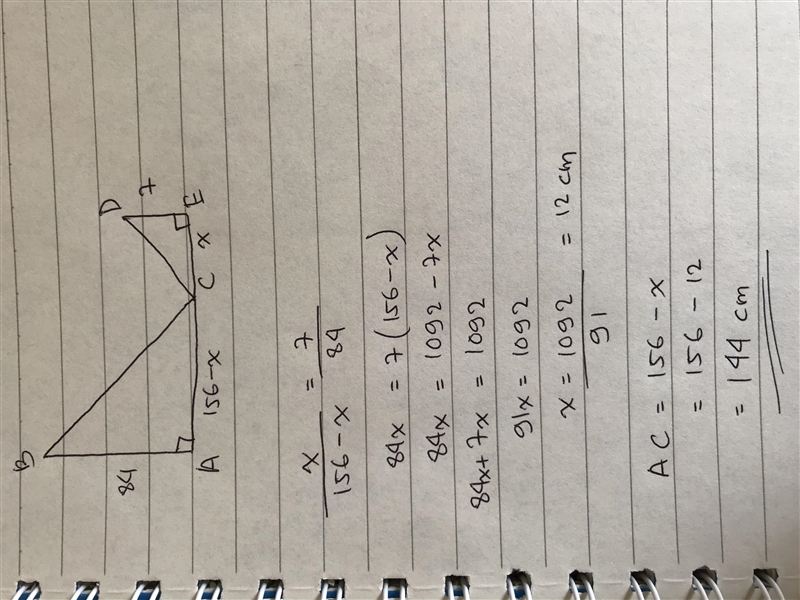 B
D
84
7
A
156-x
C
x
E
x/156-x = 7/84
84x = 7(156-x)
84x = 1092 - 7x
84x+7x = 1092
91x = 1092
x = 1092/91 = 12 cm
AC = 156-x
= 156-12
= 144 cm